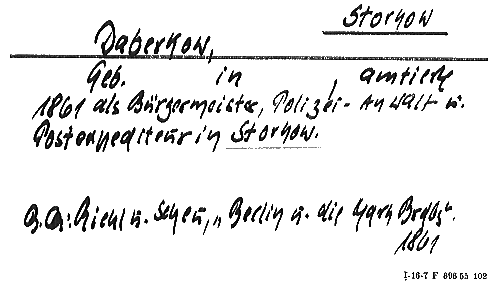 Storkow
Daberkow,
Geb. in , amtierte
1861 als Bürgermeister, Polizei-Anwalt u.
Postexpediteur in Storkow.
Q.Qu: Riehl u. Scheu, „Berlin u. die Mark Brdbg".
1861
I-16-7 F 896 55 102